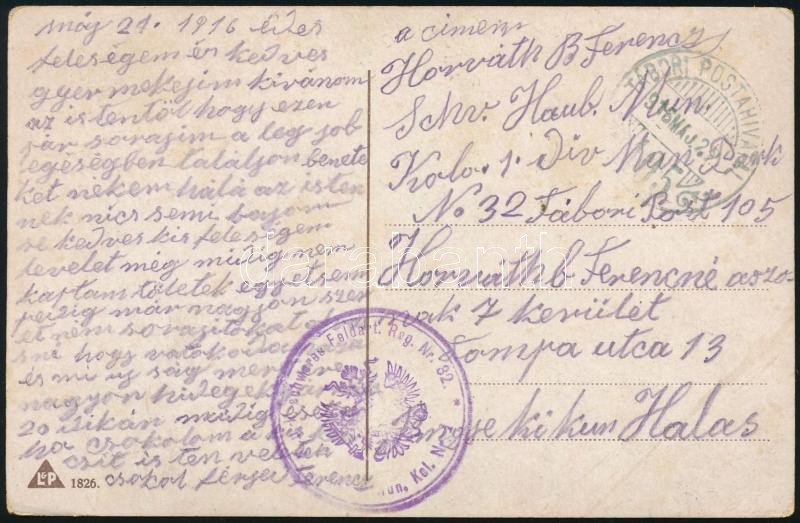 máj 21. 1916 édes
feleségem és kedves
gyermekejim kivánom
az istentöl hogy ezen
pár sorajim a leg job
egeségben találjon benete
ket nekem hálá az isten
nek nics semi bajom
se kedves kis feleségem
levelet még midig nem
kaptam töletek egyetsem
pedig már nagyon szer
et ném sorajitokat
sné hogy vatok
és mi uj ság mer
nagyon hideg
20 dikán midig eset
ha csokolom a kis
csit is ten veletek
csokol férjed Ferencz
a cimem
Horváth B Ferencz
Schv. Haub. Mun.
Kolo. 1. Div Mun. Park
No 32 Tábori Post 105
Horváth b Ferencné aszo-
nak 7 kerület
Tompa utca 13
Kiskun Halas
TÁBORI POSTAHIVATAL
916 MAJ. 29
schweres Feldart. Reg. Nr. 32.
Mun. Kol. Nr. 1
L&P
1826.
darabanth